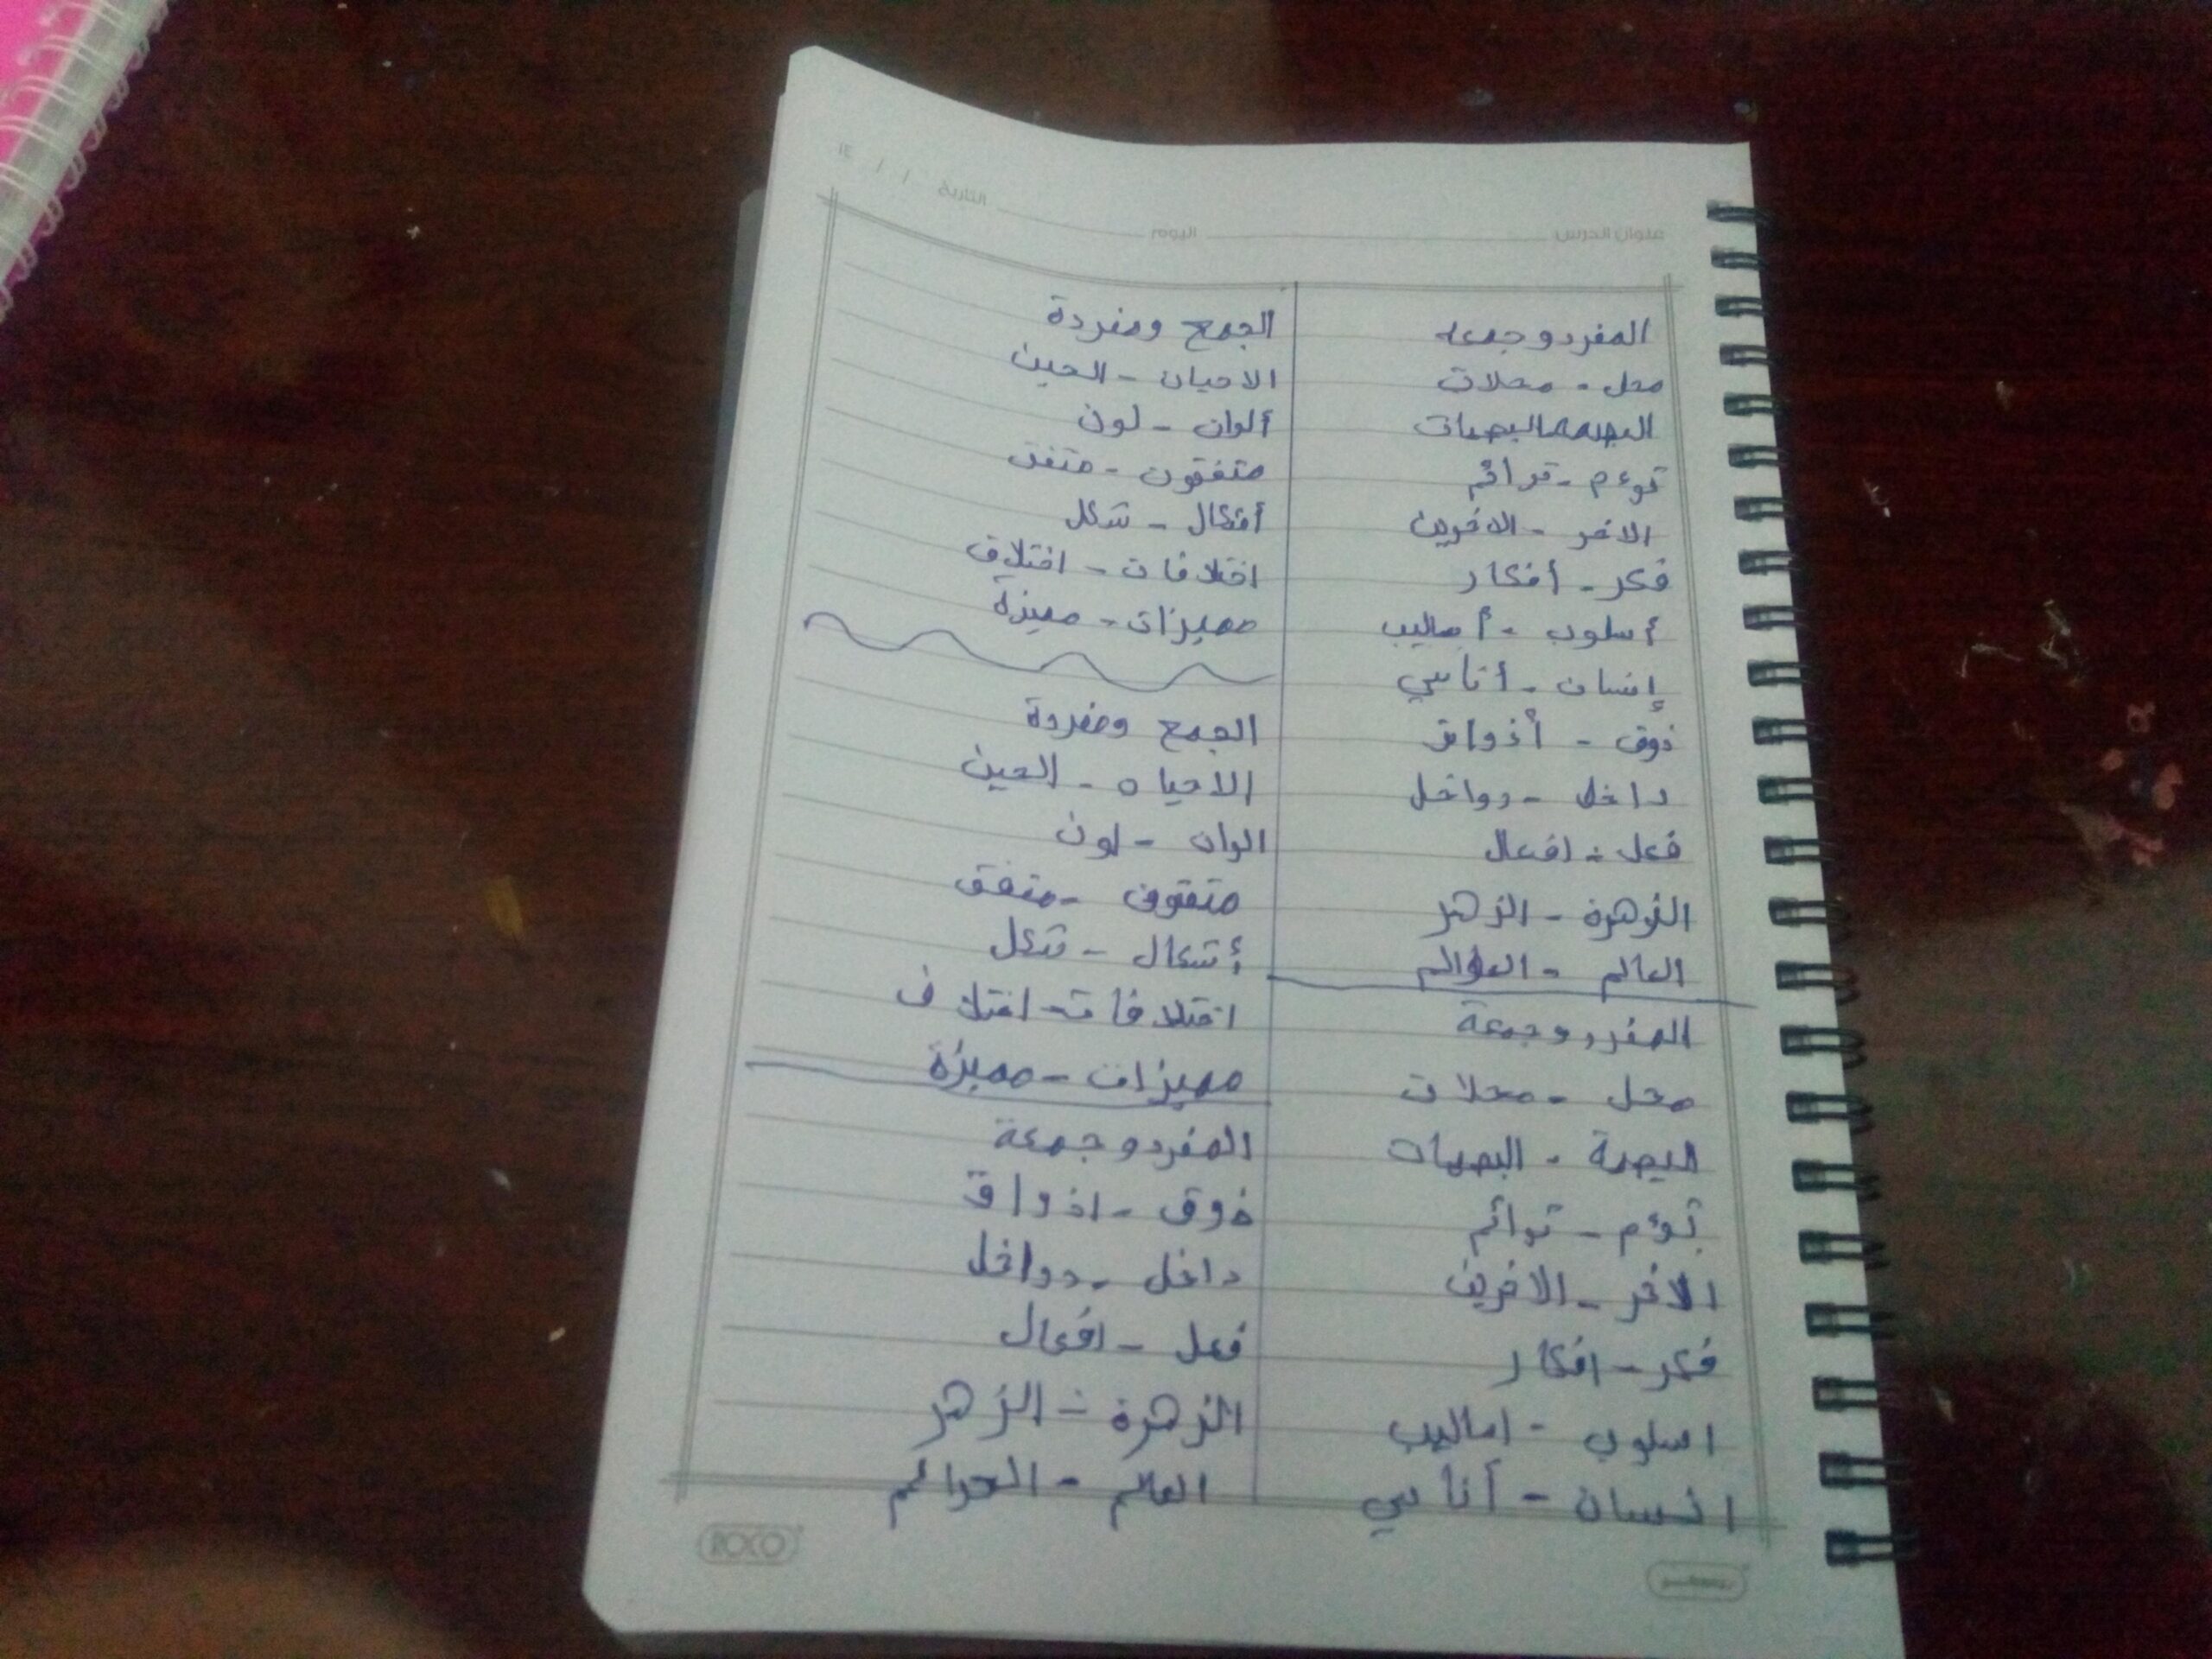 عنوان الدرس اليوم التاريخ / / ١٤
المفرد وجمعه
محل - محلات
البصمه البصمات
توءم - توائم
الاخر - الاخرين
فكر - أفكار
أسلوب - أساليب
إنسان - أناسي
ذوق - أذواق
داخل - دواخل
فعل - افعال
الزهرة - الزهر
العالم - العوالم
المفرد وجمعة
محل - محلات
البصمة - البصمات
توءم - توائم
الاخر - الاخرين
فكر - افكار
اسلوب - اساليب
انسان - أناسي
الجمع ومفردة
الاحيان - الحين
ألوان - لون
متفقون - متفق
أشكال - شكل
اختلافات - اختلاف
مميزات - ميزة
الجمع ومفردة
الاحيان - الحين
الوان - لون
متفقون - متفق
أشكال - شكل
اختلافات - اختلاف
مميزات - مميزة
المفرد وجمعة
ذوق - اذواق
داخل - دواخل
فعل - افعال
الزهرة - الزهر
العالم - العوالم
ROCO